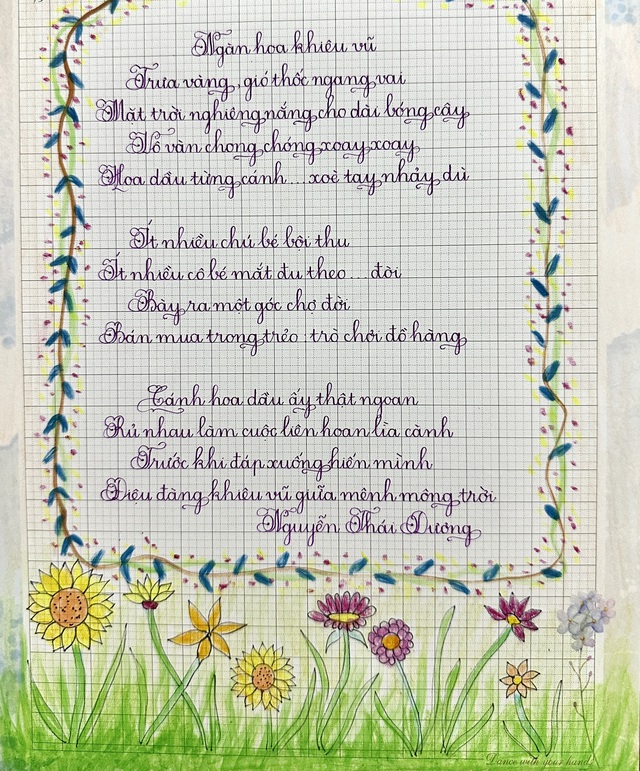 Ngàn hoa khiêu vũ
Trưa vàng, gió thốc ngang vai
Mặt trời nghiêng nắng cho dài bóng cây
Vô vàn chong chóng xoay xoay
Hoa dầu từng cánh... xoè tay nhảy dù
Ít nhiều chú bé bội thu
Ít nhiều cô bé mắt đu theo... đòi
Bày ra một góc chợ đời
Bán mua trong trẻo : trò chơi đồ hàng
Cánh hoa dầu ấy thật ngoan
Rủ nhau làm cuộc liên hoan lìa cành
Trước khi đáp xuống hiến mình
Diệu đàng khiêu vũ giữa mênh mông trời
Nguyễn Thái Dương
Dance with your hand